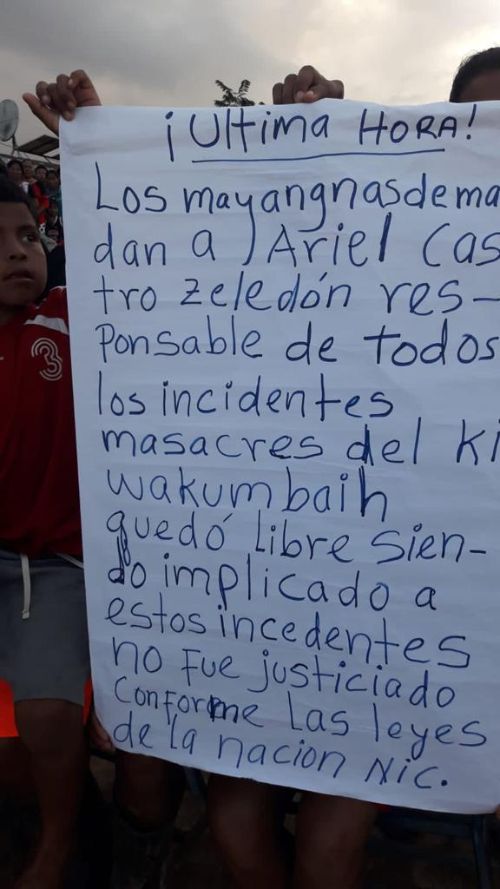 ¡Ultima HORA!
Los mayangnas dema
dan a Ariel Cas
tro zeledón res-
Ponsable de todos
los incidentes
masacres del ki
wakumbaih
quedó libre sien-
do implicado a
estos incedentes
no fue justiciado
conforme las leyes
de la nacion Nic.
3